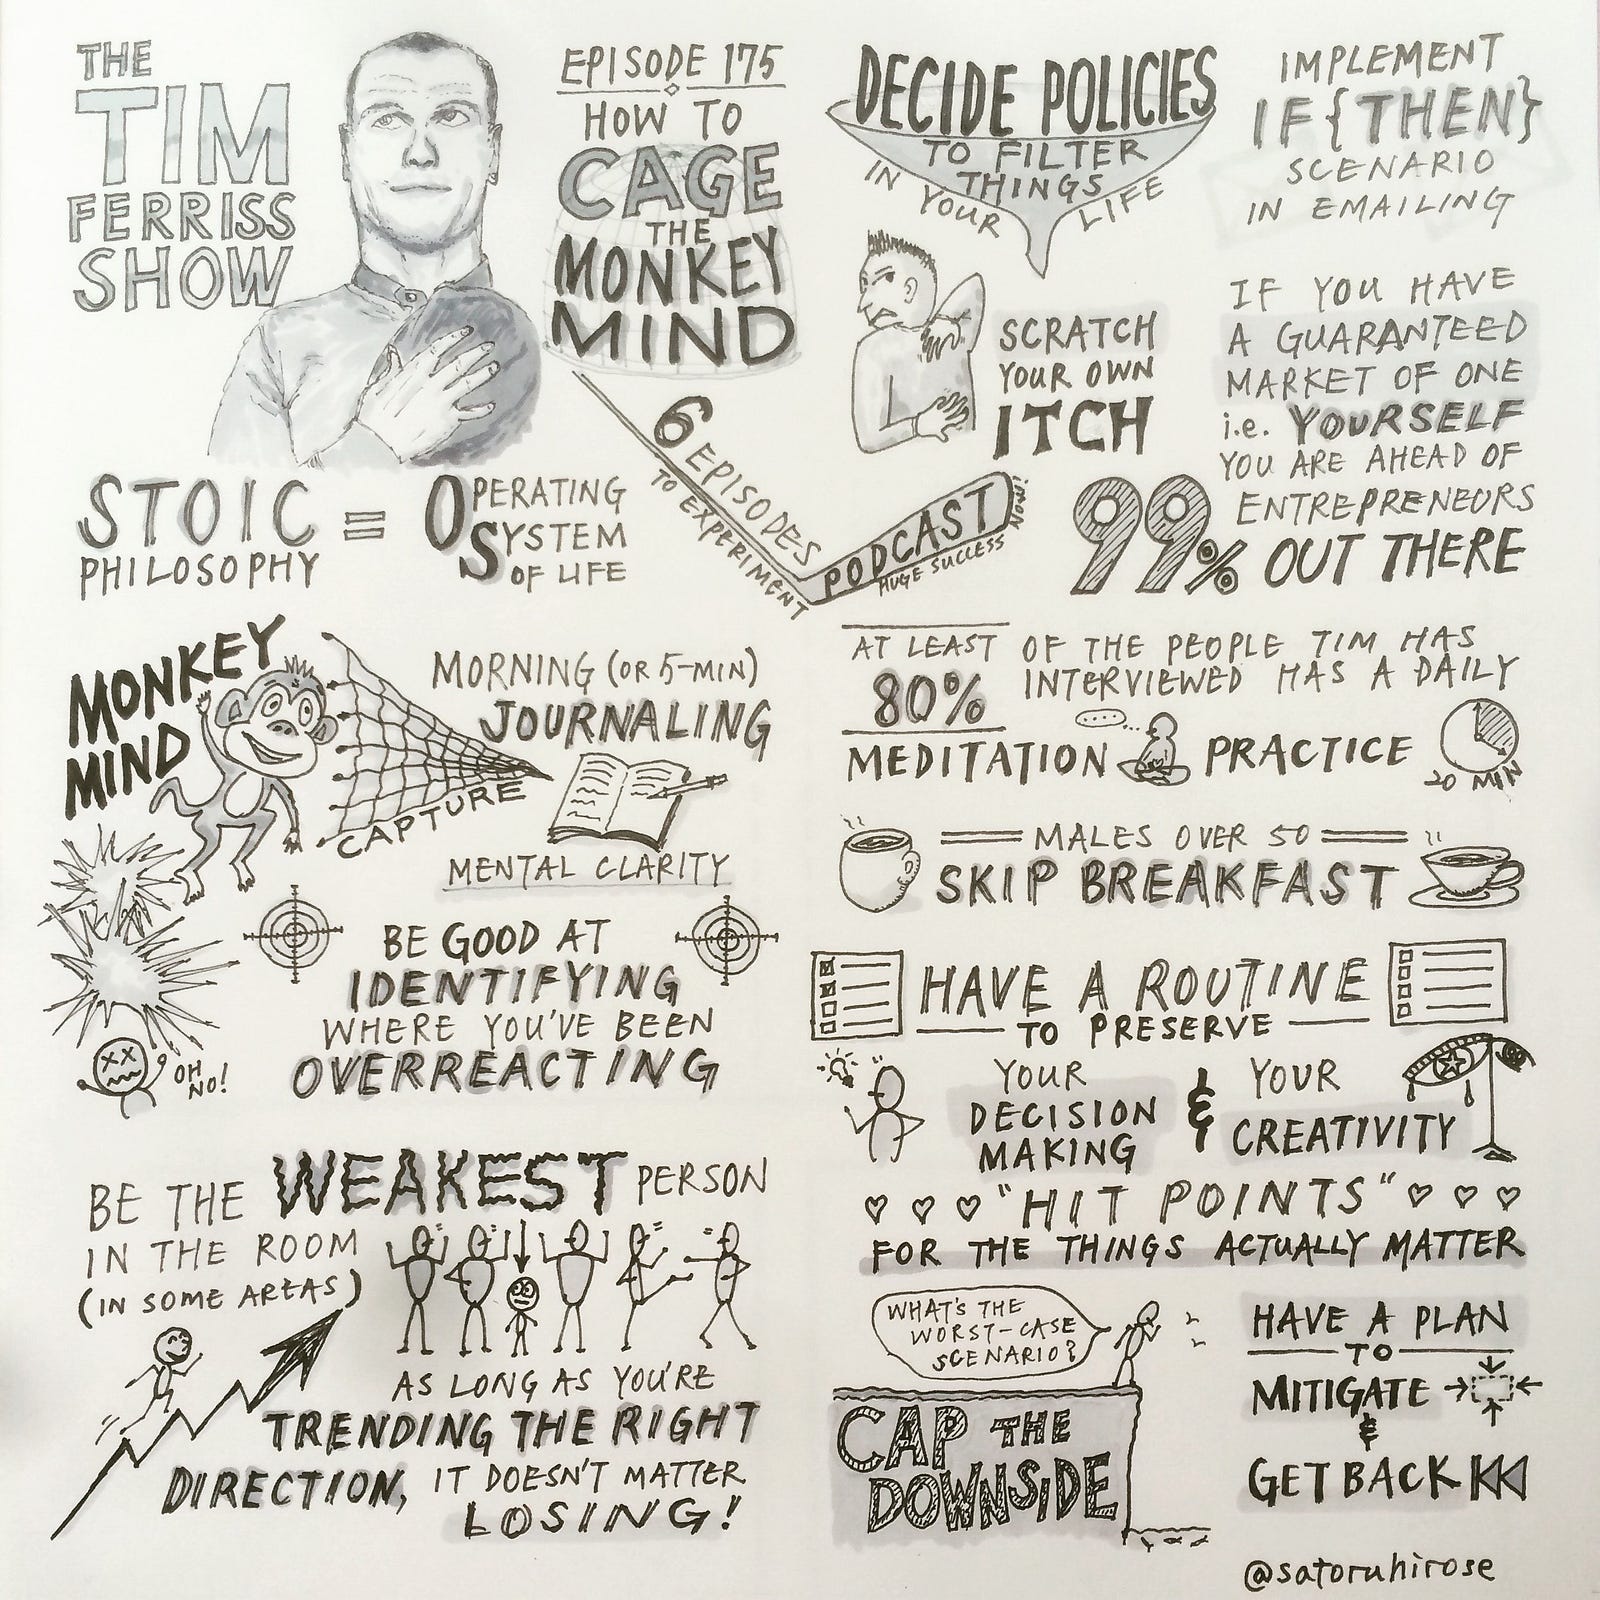 THE
TIM
FERRISS
SHOW
EPISODE 175
HOW TO
CAGE
THE
MONKEY
MIND
STOIC
PHILOSOPHY
=
OPERATING
SYSTEM
OF LIFE
6 EPISODES
TO EXPERIMENT
PODCAST
HUGE SUCCESS
MONKEY
MIND
CAPTURE
MORNING (OR 5-MIN)
JOURNALING
MENTAL CLARITY
BE GOOD AT
IDENTIFYING
WHERE YOU'VE BEEN
OVERREACTING
OH
NO!
BE THE WEAKEST PERSON
IN THE ROOM
(IN SOME AREAS)
AS LONG AS YOU'RE
TRENDING THE RIGHT
DIRECTION, IT DOESN'T MATTER
LOSING!
DECIDE POLICIES
TO FILTER
THINGS
IN YOUR LIFE
IMPLEMENT
IF {THEN}
SCENARIO
IN EMAILING
SCRATCH
YOUR OWN
ITCH
IF YOU HAVE
A GUARANTEED
MARKET OF ONE
i.e. YOURSELF
YOU ARE AHEAD OF
99% ENTREPRENEURS
OUT THERE
AT LEAST
80%
OF THE PEOPLE TIM HAS
INTERVIEWED HAS A DAILY
MEDITATION PRACTICE
20 MIN
MALES OVER 50
SKIP BREAKFAST
HAVE A ROUTINE
TO PRESERVE
YOUR
DECISION
MAKING
&
YOUR
CREATIVITY
"HIT POINTS"
FOR THE THINGS ACTUALLY MATTER
WHAT'S THE
WORST-CASE
SCENARIO?
CAP THE
DOWNSIDE
HAVE A PLAN
TO
MITIGATE
&
GET BACK
@satoruhirose